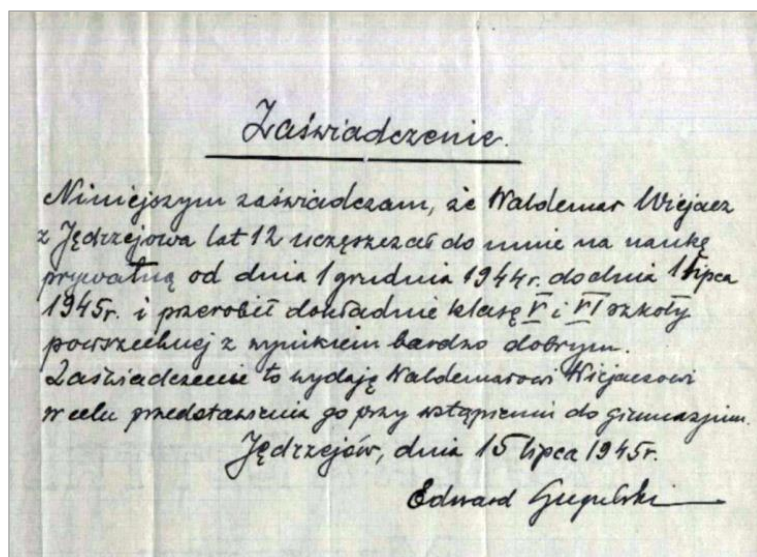 Zaświadczenie.
Niniejszym zaświadczam, że Waldemar Wiejacz
z Jędrzejowa lat 12 uczęszczał do mnie na naukę
prywatną od dnia 1 grudnia 1944r. do dnia 1 lipca
1945r. i przerobił dokładnie klasę V i VI szkoły
powszechnej z wynikiem bardzo dobrym.
Zaświadczenie to wydaję Waldemarowi Wiejaczowi
w celu przedstawienia go przy wstąpieniu do gimnazjum.
Jędrzejów, dnia 15 lipca 1945r.
Edward